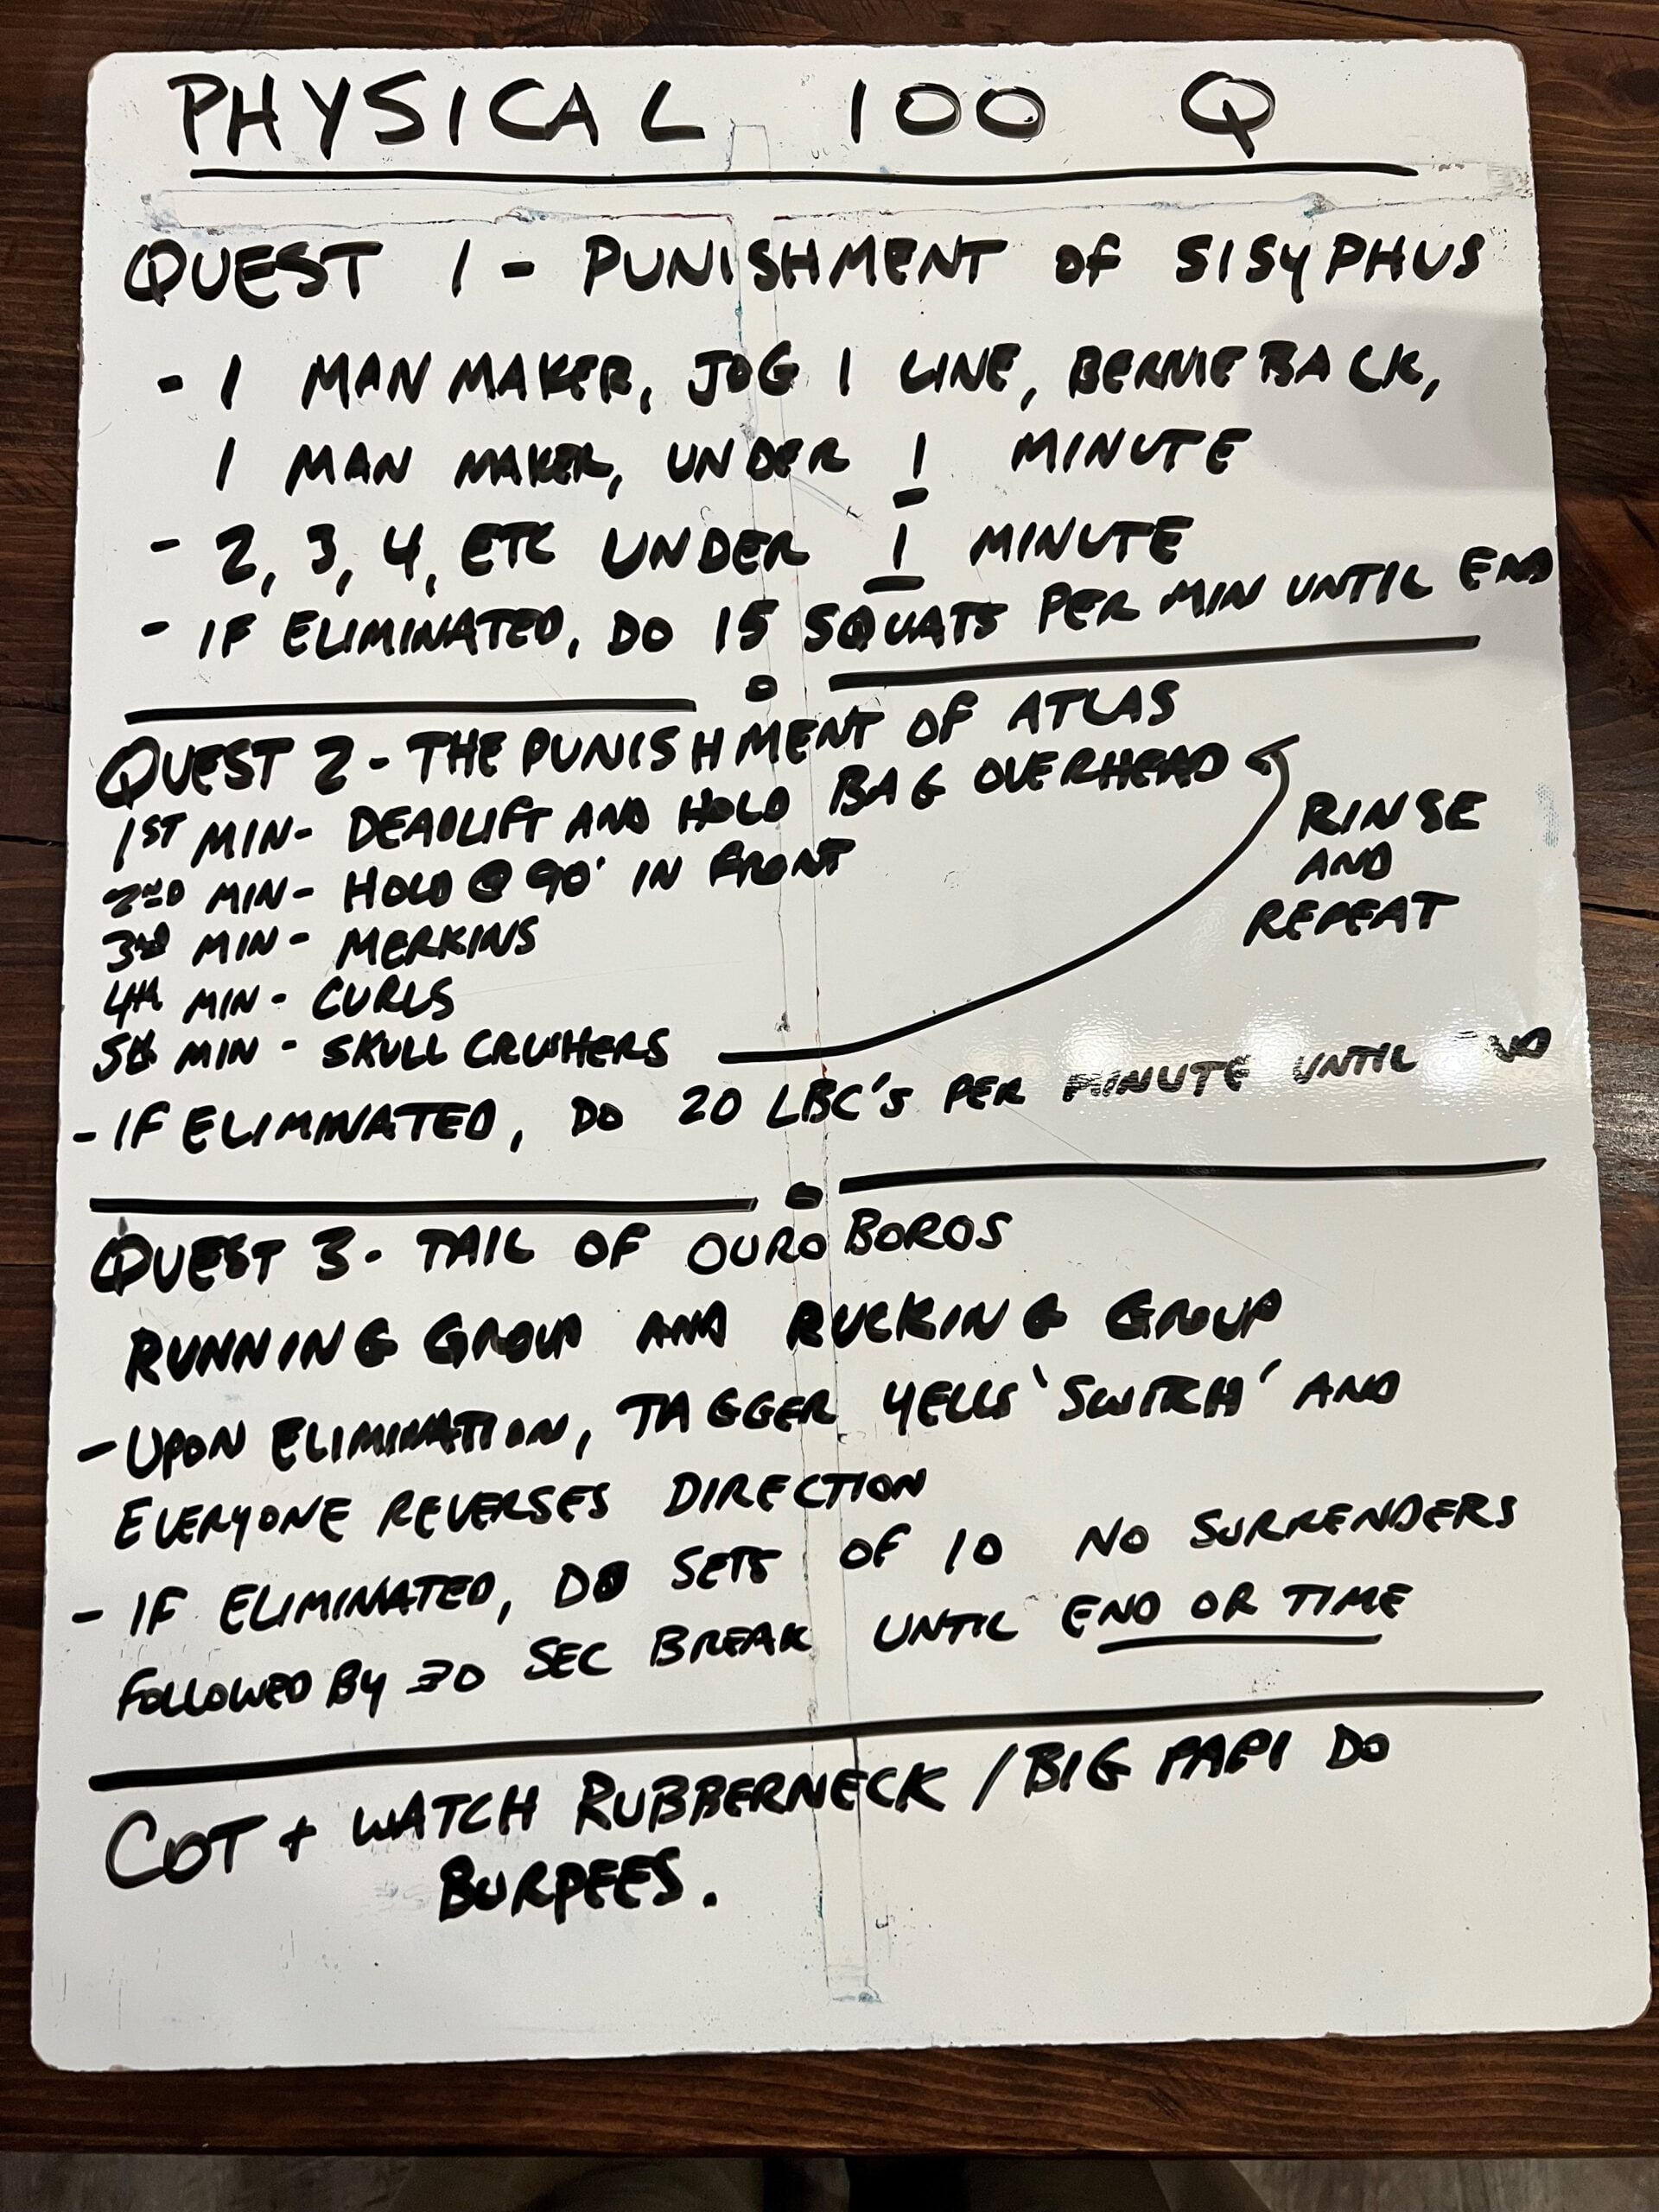 PHYSICAL 100 Q
QUEST 1 - PUNISHMENT OF SISYPHUS
- 1 MAN MAKER, JOG 1 LINE, BERNIE BACK,
1 MAN MAKER, UNDER 1 MINUTE
- 2, 3, 4, ETC UNDER 1 MINUTE
- IF ELIMINATED, DO 15 SQUATS PER MIN UNTIL END
QUEST 2 - THE PUNISHMENT OF ATLAS
1ST MIN - DEADLIFT AND HOLD BAG OVERHEAD
2ND MIN - HOLD @ 90° IN FRONT
3RD MIN - MERKINS
4TH MIN - CURLS
5TH MIN - SKULL CRUSHERS
RINSE
AND
REPEAT
- IF ELIMINATED, DO 20 LBC'S PER MINUTE UNTIL END
QUEST 3 - TAIL OF OUROBOROS
RUNNING GROUP AND RUCKING GROUP
- UPON ELIMINATION, TAGGER YELLS 'SWITCH' AND
EVERYONE REVERSES DIRECTION
- IF ELIMINATED, DO SETS OF 10 NO SURRENDERS
FOLLOWED BY 30 SEC BREAK UNTIL END OR TIME
COT + WATCH RUBBERNECK / BIG PAPI DO
BURPEES.